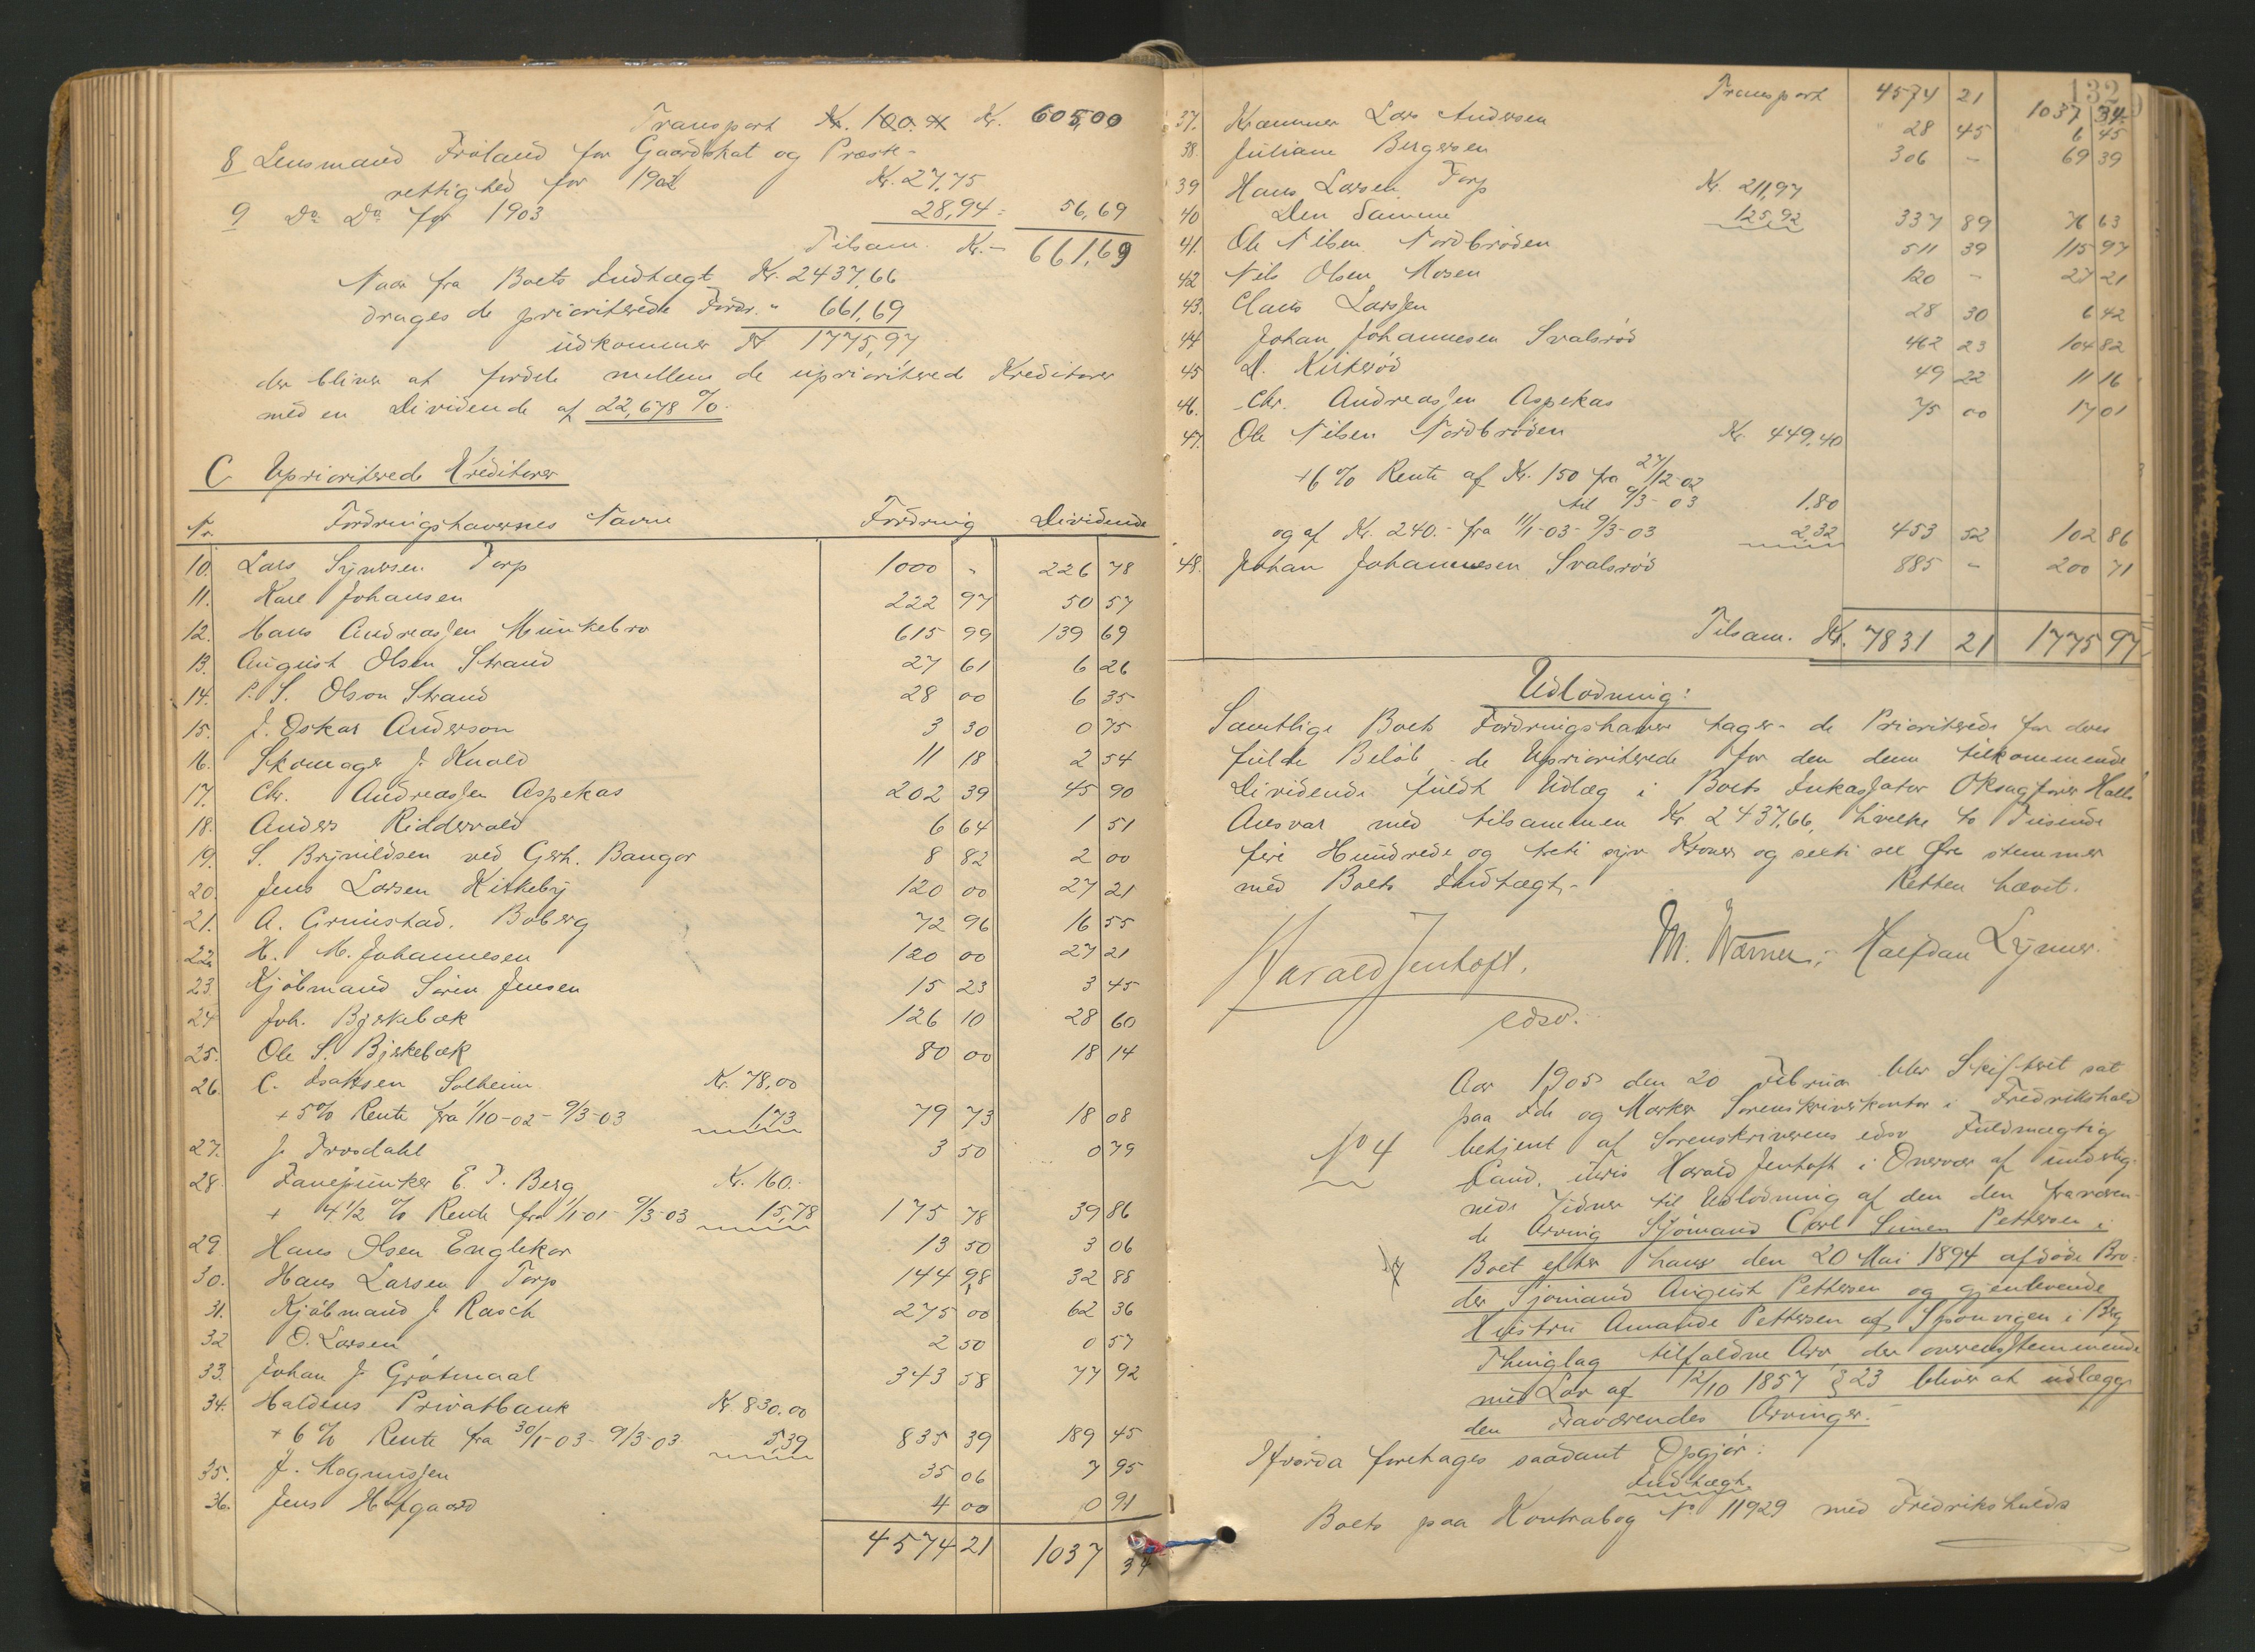 Transport Kr. 100.= Kr. 605,00
8 Lensmand Fröland for Gaardskat og Præste-
rettighed for 1902 Kr. 27,75
9 Do Do for 1903 28,94 = 56,69
Tilsam. Kr. - 661,69
Naar fra Boets Indtægt Kr. 2437,66
drages de prioriterede Fordr. " 661,69
udkommer Kr 1775,97
der bliver at fordele mellem de uprioriterede Kreditorer
med en Dividende af 22,678 %.
C Uprioriterede Kreditorer
Nr. Fordringshavernes Navne Fordring Dividende
10. Lars Syversen Torp 1000 - 226 78
11. Karl Johansen 222 97 50 57
12. Hans Andreassen Munkebro 615 99 139 69
13. August Olsen Strand 27 61 6 26
14. P. S. Olson Strand 28 00 6 35
15. J. Oskar Anderson 3 30 0 75
16. Skomager J. Knold 11 18 2 54
17. Chr. Andreassen Aspekas 202 39 45 90
18. Anders Riddervold 6 64 1 51
19. S. Brynildsen ved Gerh. Bangor 8 82 2 00
20. Jens Larsen Kirkeby 120 00 27 21
21. A. Grimstad. Boberg 72 96 16 55
22. H. M. Johannesen 120 00 27 21
23. Kjöbmand Sören Jensen 15 23 3 45
24 Joh. Bjerkebæk 126 10 28 60
25. Ole S. Bjerkebæk 80 00 18 14
26. C. Isaksen Solheim Kr. 78,00
+ 5% Rente fra 1/10-02 - 9/3-03 1,73 79 73 18 08
27. J. Trosdahl 3 50 0 79
28 Fanejunker E. T. Berg Kr. 160.-
+ 4 1/2 % Rente fra 1/1-01 9/3-03 15,78 175 78 39 86
29 Hans Olsen Englekor 13 50 3 06
30. Hans Larsen Torp 144 98 32 88
31. Kjöbmand J. Rasch 275 00 62 36
32 O. Larsen 2 50 0 57
33. Johan J. Grötmaal 343 58 77 92
34. Haldens Privatbank Kr. 830.00
+ 6% Rente fra 30/1-03 - 9/3-03 5,39 835 39 189 45
35. J. Magnussen 35 06 7 95
36. Jens Hofgaard 4 00 0 91
4574 21 1037 34
132
Transport 4574 21 1037 34
37. Kræmmer Lars Andersen 28 45 6 45
38. Juliane Bergersen 306 - 69 39
39 Hans Larsen Torp Kr. 211,97
40 Den Samme 125,92 337 89 76 63
41. Ole Nilsen Nordbröden 511 39 115 97
42 Nils Olsen Mosen 120 - 27 21
43. Claus Larssen 28 30 6 42
44 Johan Johannesen Svalsröd 462 23 104 82
45 A. Kirkeröd 49 22 11 16
46. Chr. Andreassen Aspekas 75 00 17 01
47. Ole Nilsen Nordbröden Kr. 449,40
+6% Rente af Kr. 150 fra 27/12-02
til 9/3-03 1.80
og af Kr. 240.- fra 11/1-03 - 9/3-03 2,32 453 52 102 86
48. Johan Johannesen Svalsröd 885 - 200 71
Tilsam. Kr. 7831 21 1775 97
Udlodning:
Samtlige Boets Fordringshaver tager - de Prioriterede for deres
fulde Belöb, de Uprioriterede for den dem tilkommende
Dividende fuldt Udlæg i Boets Inkassator Oksagförer Halls
Ansvar med tilsammen Kr 2437,66, hvilke to Tusinde
fire Hundrede og treti syv Kroner og seksti sex Öre stemmer
med Boets Indtægt.-
Retten hævet.
Harald Jenhoft. M. Warner. Halfdan Lynner.
edsv.
Aar 1905 den 20 Februar blev Skifteret sat
paa Idde og Marker Sorenskriverkontor i Fredrikshald
No 4 betjent af Sorenskriverens edsv Fuldmægtig
Cand. juris Harald Jenhoft i Overvær af underteg-
nede Vidner til Udlodning af den den fraværen-
de Arving Sjömand Carl Simen Pettersen i
Boet efter hans den 20 Mai 1894 afdöde Bro-
der Sjömand August Pettersen og gjenlevende
Hustru Amande Pettersen af Sponvigen i Berg
Thinglag tilfaldne Arv der overensstemmende
med Lov af 12/10 1857 § 23 bliver at udlægge
den Fraværendes Arvinger.-
Hvorda foretages saadant Opgjör:
Indtægt
Boets paa Kontrabog No 11929 med Fredrikshalds